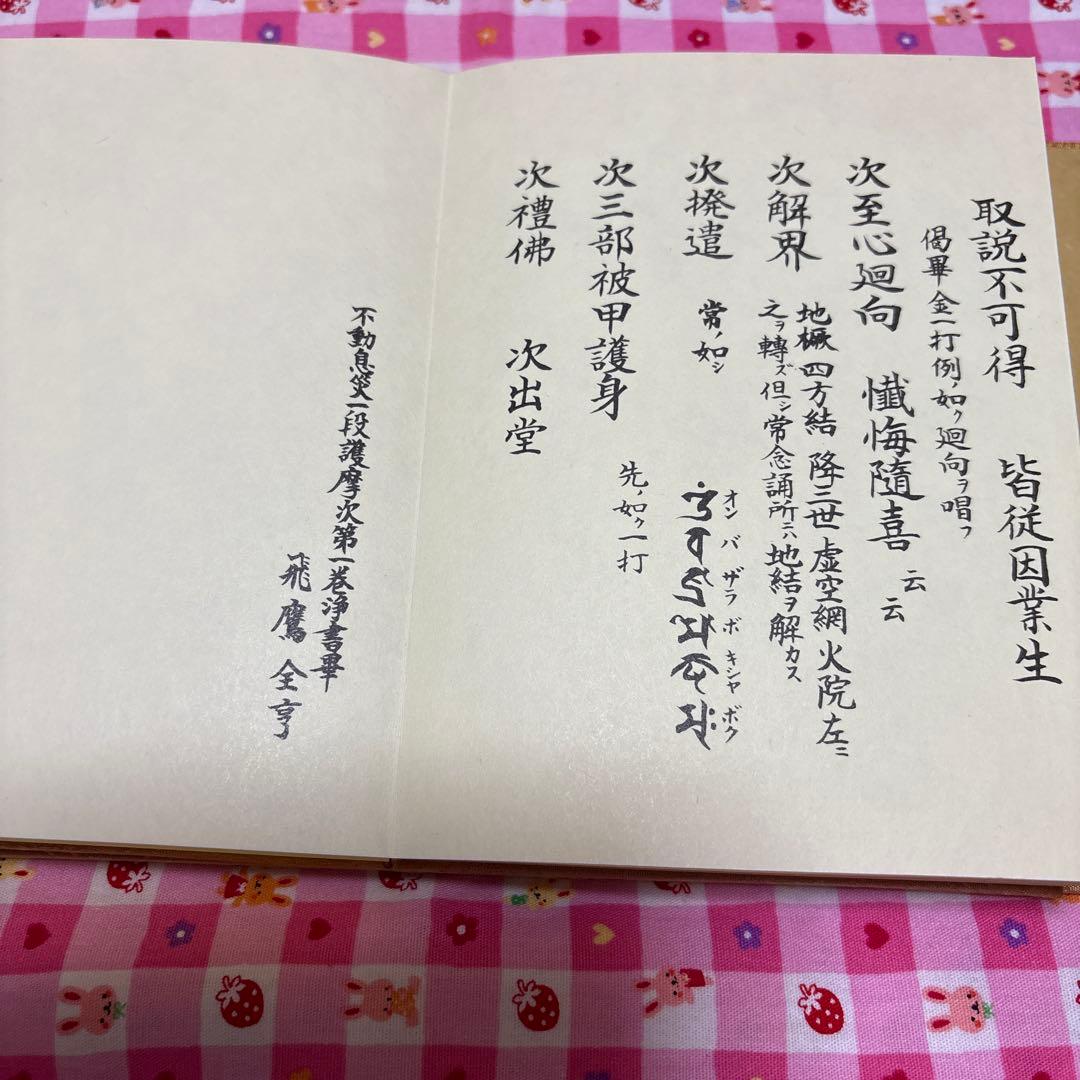 取説不可得　皆従因業生
偈畢金一打例ノ如ク廻向ヲ唱フ
次至心廻向　懺悔隨喜云云
次解界　地橛四方結降三世虚空網火院左ニ
之ヲ轉ズ但シ常念誦所ニハ地結ヲ解カス
次撥遣　常ノ如シ
オンバザラボキシャボク
次三部被甲護身　先ノ如ク一打
次禮佛　次出堂
不動息災一段護摩次第一巻浄書畢
飛鷹全亨